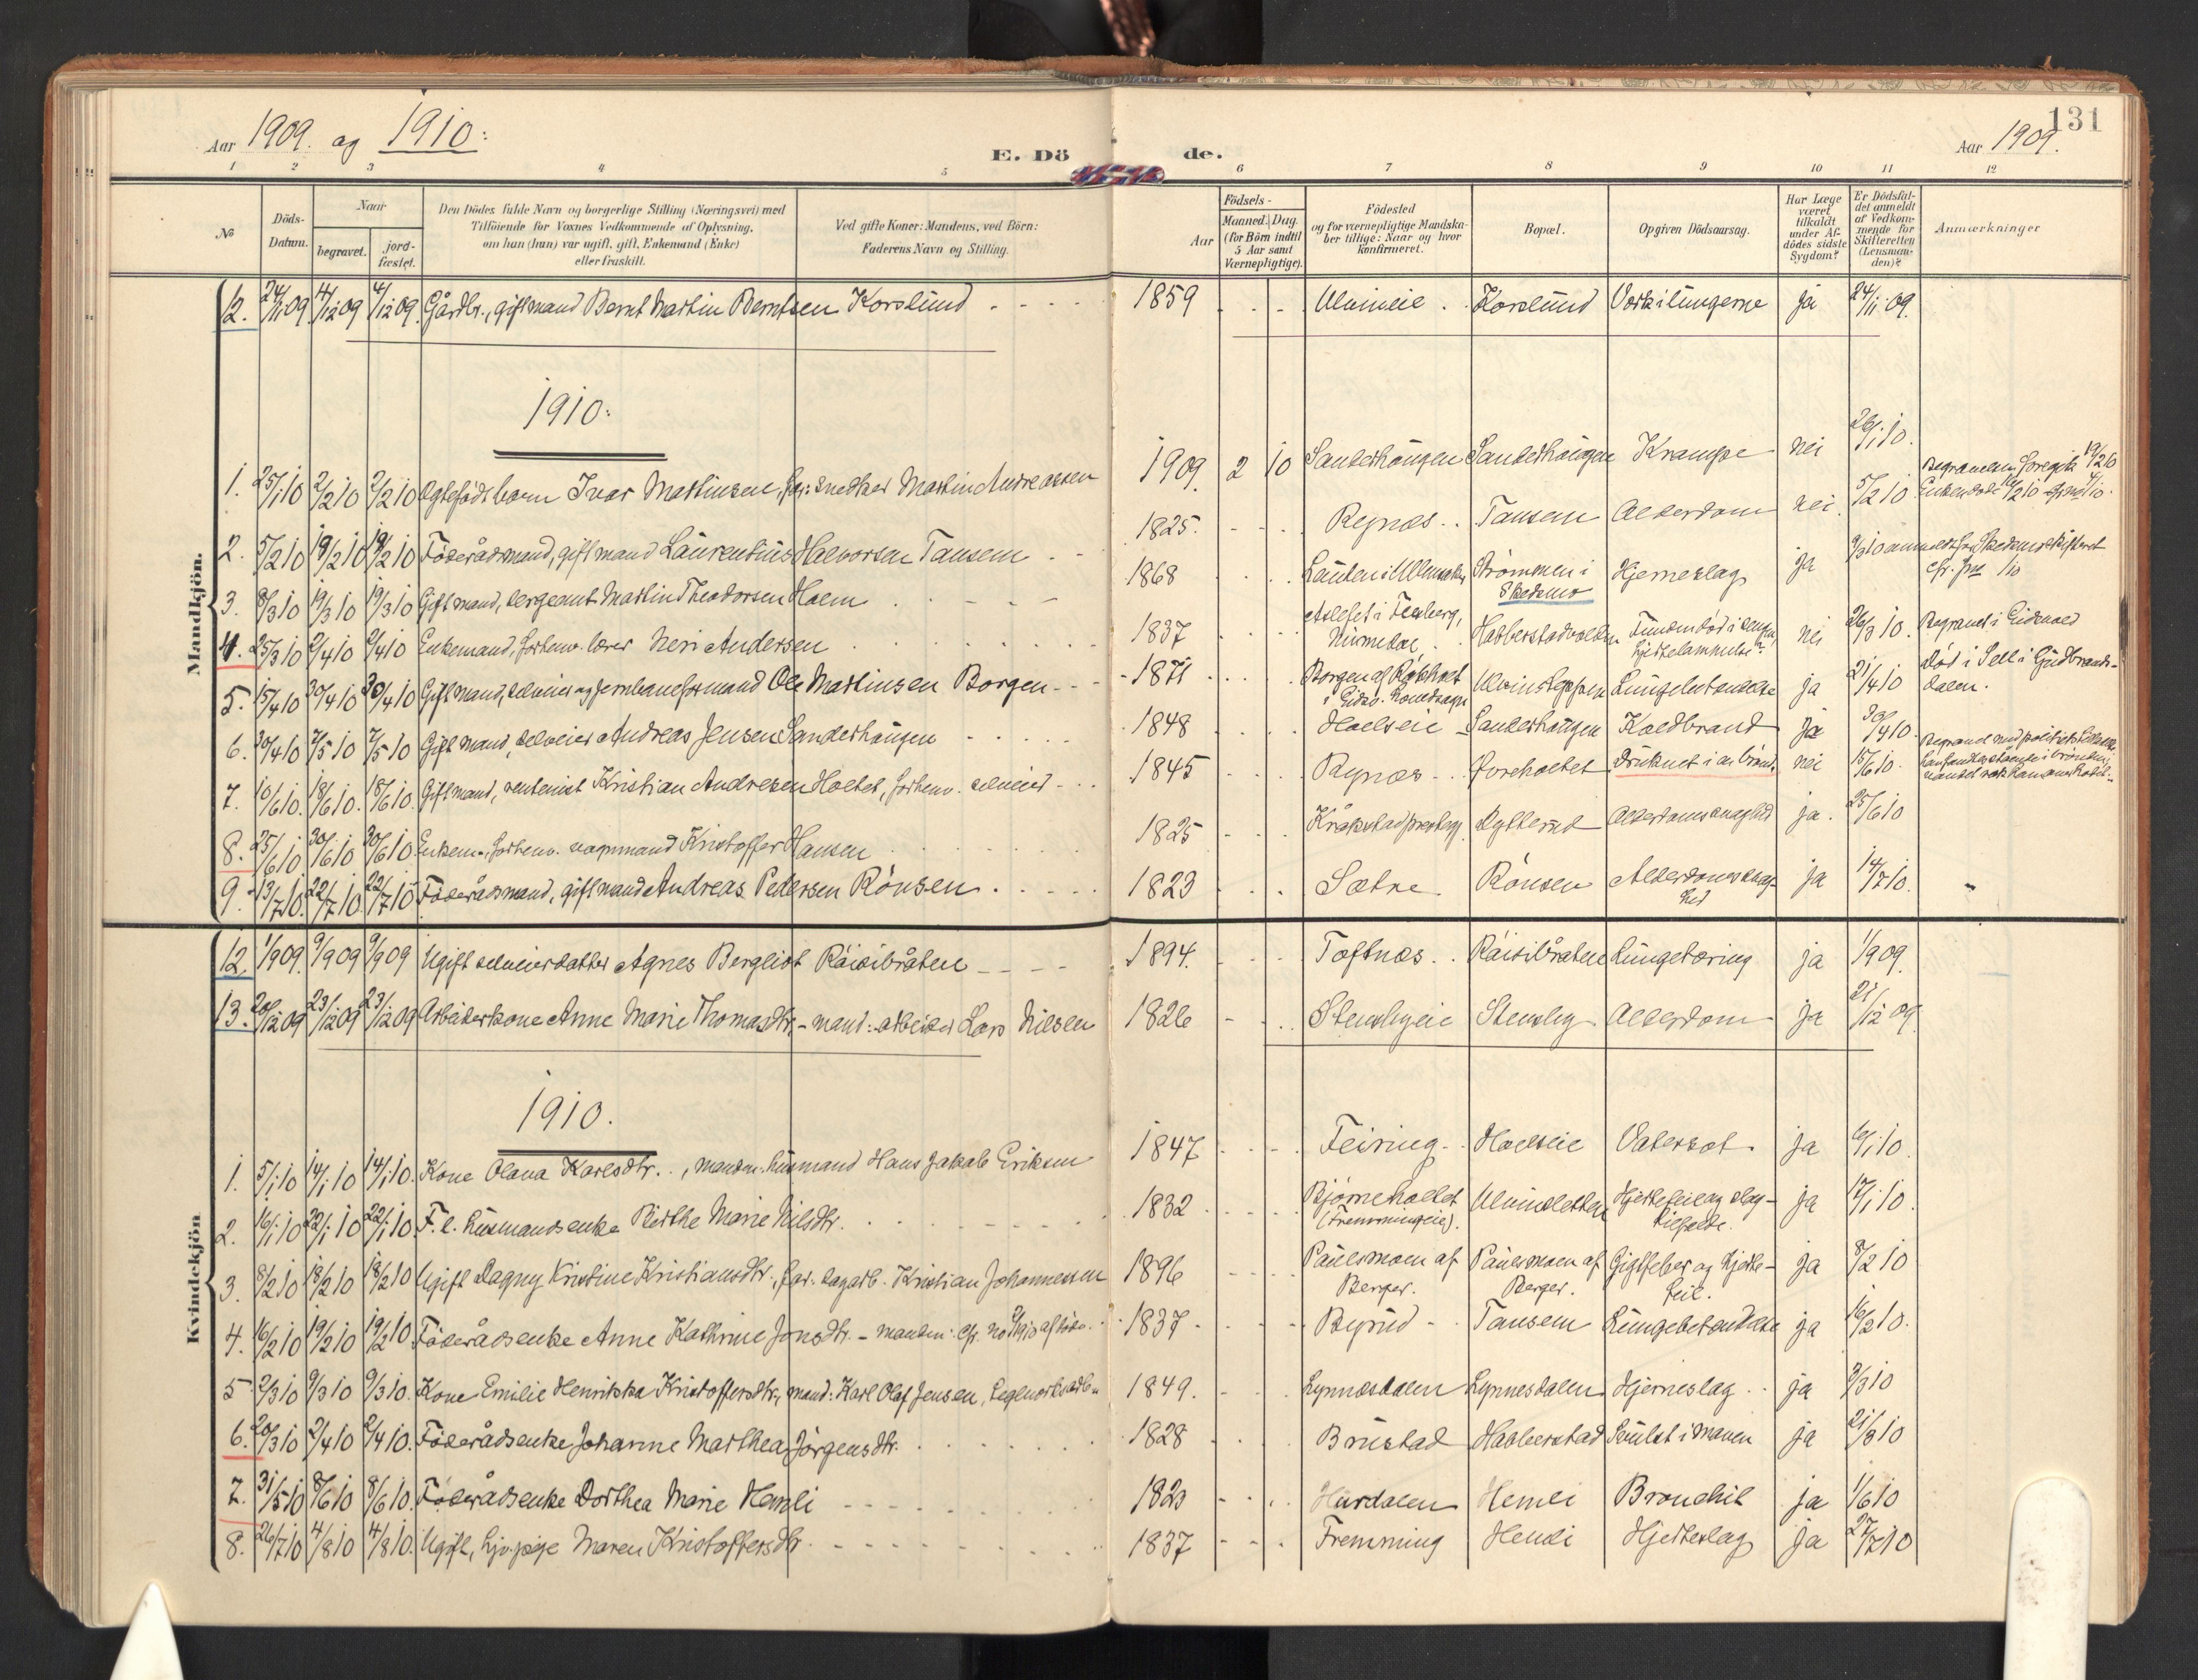 131
Aar 1909. og 1910:
E. Dö
de.
Aar 1909.
1 2 3 4 5 6 7 8 9 10 11 12
№
Döds-
Datum.
Naar
begravet.
jord-
fæstet.
Den Dödes fulde Navn og borgerlige Stilling (Næringsvei) med
Tilföiende for Voxnes Vedkommende af Oplysning,
om han (hun) var ugift, gift, Enkemand (Enke)
eller fraskilt.
Ved gifte Koner: Mandens, ved Börn:
Faderens Navn og Stilling.
Aar
Födsels-
Maaned. Dag.
(for Börn indtil
5 Aar samt
Værnepligtige).
Födested
og for værnepligtige Mandska-
ber tillige: Naar og hvor
konfirmeret.
Bopæl.
Opgiven Dödsaarsag.
Har Læge
været
tilkaldt
under Af-
dödes sidste
Sygdom?
Er Dödsfal-
det anmeldt
af Vedkom-
mende for
Skifteretten
(Lensman-
den)?
Anmærkninger
Mandkjön.
12. 24/11 09 4/12 09 4/12 09 Gårdbr., gift mand Bernt Martin Berntsen Korslund 1859 Ulvineie Korslund Verk i lungerne ja 24/11 09.
1910:
1. 25/1 10 2/2 10 2/2 10 Ægtefödt barn Ivar Martinsen, far: snedker Martin Andreassen 1909. 2 10 Sanderhaugen Sanderhaugen Krampe nei 26/1 10.
2. 5/2 10 19/2 10 19/2 10 Föderådsmand, gift mand Laurentius Halvorsen Tansem 1825. Rognæs Tansem Alderdom nei. 5/2 10 Begravelsen foregik 19/2 10
Enken död 16/2 10
3. 8/3 10 19/3 10 19/3 10 Gift mand, sergeant Martin Theodorsen Holm 1868 Lauten i Ullensaker Strömmen i
Skedsmo Hjerneslag ja 9/3 10 anmeldt for Skedsmo skifteret
4. 25/3 10 2/4 10 2/4 10 Enkemand, forhenv. lærer Neri Andersen 1837 i Flesberg,
Numedal Habberstadvolden Funden död i sengen,
hjertelammelse? nei 26/3 10. Begravet i Eidsvold
5. 15/4 10 30/4 10 30/4 10 Gift mand, selveier og jernbaneformand Ole Martinsen Borgen 1871 Borgen af Råholt
i Eidsv. Ulvinsleppen Lungebetændelse ja 21/4 10 Död i Sell i Gudbrands-
dalen.
6. 30/4 10 7/5 10 7/5 10 Gift mand, selveier Andreas Jensen Sanderhaugen 1848 Holseie Sanderhaugen Koldbrand ja 30/4 10.
7. 10/6 10. 18/6 10. 18/6 10. Gift mand, rentenist Kristian Andresen Holtet, forhenv. selveier 1845 Rognæs Övreholtet Druknet i en brönd. nei 15/6 10.
8. 25/6 10 30/6 10 30/6 10 Enkem., forhenv. vognmand Kristoffer Hansen 1825 Kråkstad prestegj. Dytterud Alderdomssvaghed ja. 25/6 10
9. 13/7 10. 22/7 10. 22/7 10 Föderådsmand, gift mand Andreas Pedersen Rönsen 1823 Sætre. Rönsen Alderdomssvag-
hed ja 14/7 10.
Kvindekjön
12. 1/9 09. 9/9 09 9/9 09 Ugift selveierdatter Agnes Bergliot Räisibråten 1894. Toftnæs Räisibråten Lungetæring ja 1/9 09.
13. 20/12 09 23/12 09 23/12 09 Arbeiderkone Anne Marie Thomasdtr. - mand: arbeider Lars Nilsen 1826 Stensbyeie Stensby Alderdom ja 21/12 09
1910.
1. 5/1 10 14/1 10 14/1 10. Kone Olava Karlsdtr., manden: husmand Hans Jakob Eriksen 1847 Feiring Holseie Vatersot ja 6/1 10.
2. 16/1 10 22/1 10 22/1 10. F. l. husmandsenke Berthe Marie Nilsdtr. 1832 Björneholtet
(Fremmingeie). Ulvinsletten Hjertefeil og slag-
tilfælde. ja 17/1 10.
3. 8/2 10 18/2 10 18/2 10 Ugift Dagny Kristine Kristiansdtr., far: dagarb. Kristian Johannessen 1896 Paulsmoen af
Berger. Paulsmoen af
Berger. Gigtfeber og hjerte-
feil. ja 8/2 10
4. 16/2 10 19/2 10 19/2 10 Föderådsenke Anne Kathrine Jonsdtr. - manden: cfr. no 2/1910 af döde. 1837 Byrud Tansem Lungebetændelse ja 16/2 10.
5 2/3 10 9/3 10 9/3 10. Kone Emilie Henrikka Kristoffersdtr., mand: Karl Olaf Jensen, teglverksarb. 1849. Lynnæsdalen Lynnesdalen Hjerneslag ja 3/3 10
6. 20/3 10 2/4 10 2/4 10. Föderådsenke Johanne Marthea Jörgensdtr. 1828 Brustad Habberstad Svulst i maven ja 21/3 10
7. 31/5 10 8/6 10 8/6 10. Föderådsenke Dorthea Marie Hemli 1823 Hurdalen Hemli Bronchit ja 1/6 10
8. 26/7 10 4/8 10 4/8 10. Ugift, pige Maren Kristoffersdtr. 1837 Fremming Hemli Hjerteslag ja 27/7 10